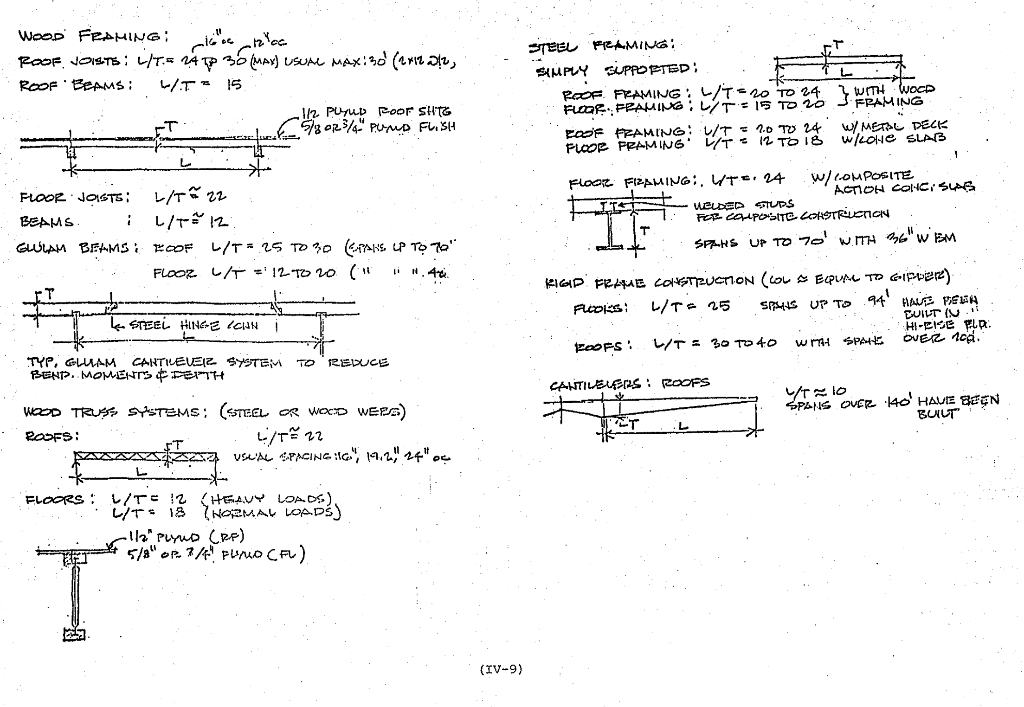 WOOD FRAMING:
16" OC 12" OC
ROOF JOISTS: L/T = 24 TO 30 (MAX) USUAL MAX: 30' (2X12 @12,
ROOF BEAMS: L/T = 15
1/2 PLYWD ROOF SHTG
5/8 OR 3/4" PLYWD FL'SH
T
L
FLOOR JOISTS: L/T ≈ 22
BEAMS : L/T ≈ 12
GLULAM BEAMS: ROOF L/T = 25 TO 30 (SPANS UP TO 70'
FLOOR L/T = 12 TO 20 ( " " " 40
T
STEEL HINGE CONN
L
TYP. GLULAM CANTILEVER SYSTEM TO REDUCE
BEND. MOMENTS & DEPTH
WOOD TRUSS SYSTEMS: (STEEL OR WOOD WEBS)
ROOFS: L/T ≈ 22
T
USUAL SPACING: 16", 19.2", 24" OC
L
FLOORS: L/T = 12 (HEAVY LOADS)
L/T = 18 (NORMAL LOADS)
1/2" PLYWD (RF)
5/8" OR 3/4" PLYWD (FL)
STEEL FRAMING:
T
L
SIMPLY SUPPORTED:
ROOF FRAMING: L/T = 20 TO 24 } WITH WOOD
FLOOR FRAMING: L/T = 15 TO 20 } FRAMING
ROOF FRAMING: L/T = 20 TO 24 W/METAL DECK
FLOOR FRAMING: L/T = 12 TO 18 W/CONC SLAB
FLOOR FRAMING: L/T = 24 W/COMPOSITE
ACTION CONC. SLAB
WELDED STUDS
FOR COMPOSITE CONSTRUCTION
T
SPANS UP TO 70' WITH 36" W BM
RIGID FRAME CONSTRUCTION (COL ≈ EQUAL TO GIRDER)
FLOORS: L/T = 25 SPANS UP TO 94' HAVE BEEN
BUILT IN
HI-RISE BLD.
ROOFS: L/T = 30 TO 40 WITH SPANS OVER 100'.
CANTILEVERS: ROOFS
L/T ≈ 10
SPANS OVER 140' HAVE BEEN
BUILT
T
L
(IV-9)